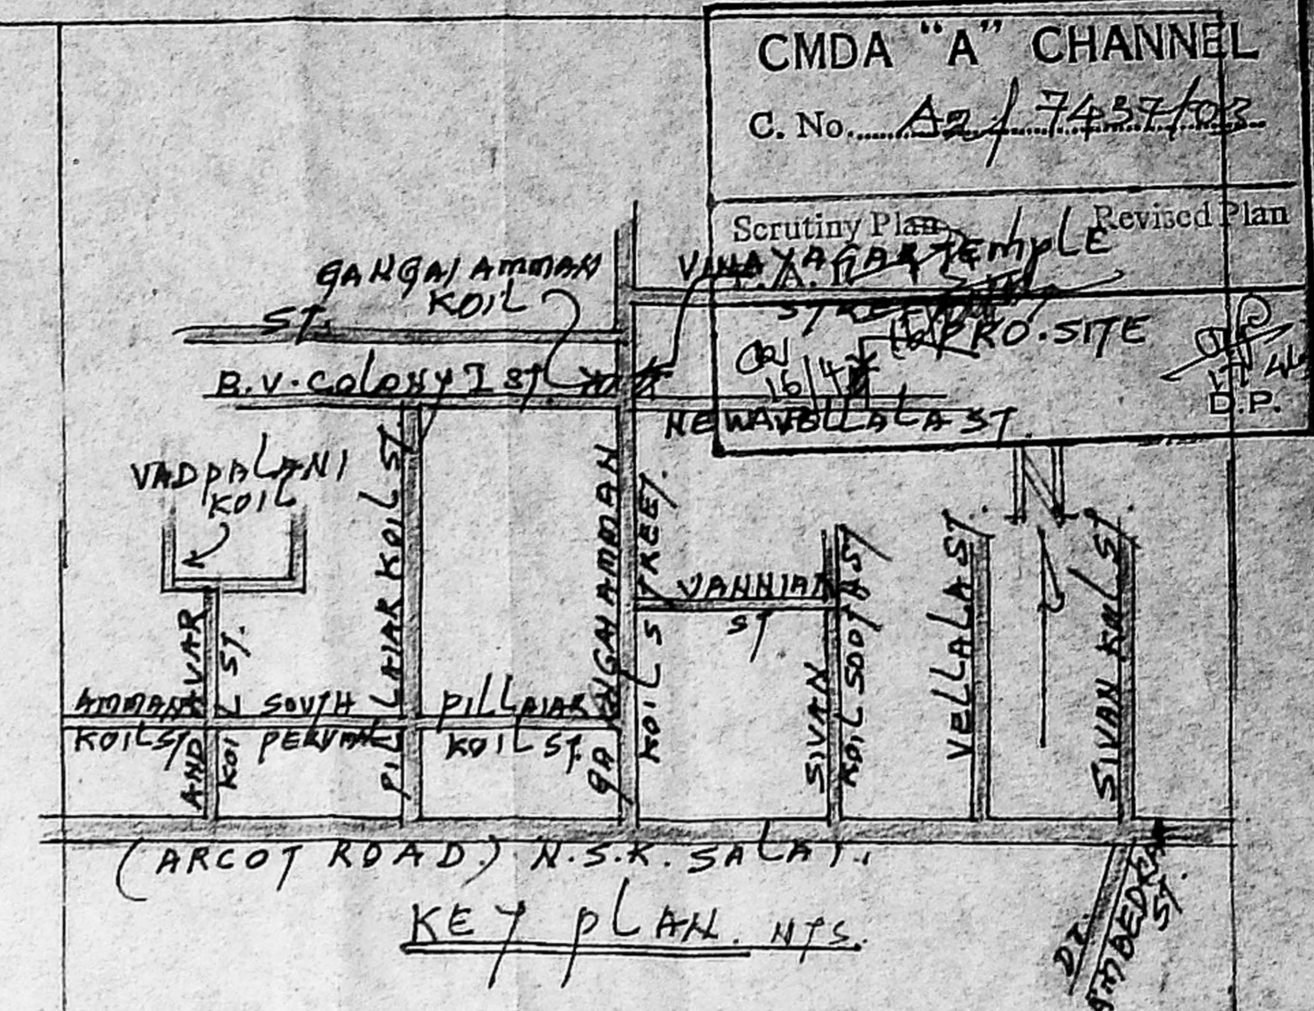 CMDA "A" CHANNEL
C. No. A2/7437/03
Scrutiny Plan Revised Plan
VINAYAGAR TEMPLE
GANGAI AMMAN
KOIL
ST.
PRO.SITE
B.V.COLONY I ST.
16/4
D.P.
NEW VELLALA ST.
VADPALANI
KOIL
N
PILLAIAR KOIL ST.
GANGAI AMMAN
KOIL STREET.
VANNIAR
ST
SIVAN
KOIL SOOTH ST
VELLALA ST.
SIVAN KOIL ST.
ANDAVAR
KOIL ST.
AMMAN
KOIL ST
SOUTH
PERUMAL
PILLAIAR
KOIL ST.
(ARCOT ROAD.) N.S.K. SALAI.
KEY PLAN. NTS.
DR.
AMBEDKAR
ST.